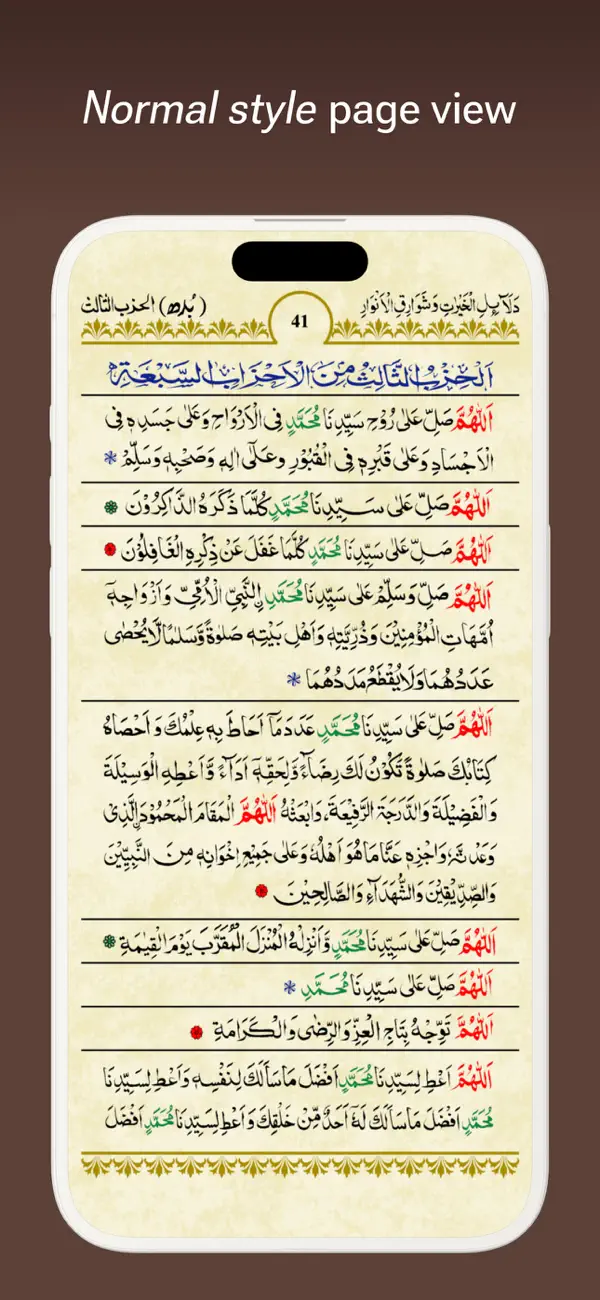 Normal style page view
دَلَآئِلِ الْخَيْرَاتِ وَشَوَارِقِ الْاَنْوَارِ
41
(بُدھ) الحزب الثالث
اَلْحِزْبُ الثَّالِثُ مِنَ الْاَحْزَابِ السَّبْعَةِ
اَللّٰهُمَّ صَلِّ عَلٰى رُوْحِ سَيِّدِنَا مُحَمَّدٍ فِى الْاَرْوَاحِ وَعَلٰى جَسَدِهٖ فِى
الْاَجْسَادِ وَعَلٰى قَبْرِهٖ فِى الْقُبُوْرِ وعَلٰٓى اٰلِهٖ وَصَحْبِهٖ وَسَلِّمْ
اَللّٰهُمَّ صَلِّ عَلٰى سَيِّدِنَا مُحَمَّدٍ كُلَّمَا ذَكَرَهُ الذَّاكِرُوْنَ
اَللّٰهُمَّ صَلِّ عَلٰى سَيِّدِنَا مُحَمَّدٍ كُلَّمَا غَفَلَ عَنْ ذِكْرِهِ الْغَافِلُوْنَ
اَللّٰهُمَّ صَلِّ وَسَلِّمْ عَلٰى سَيِّدِنَا مُحَمَّدِ ِۨالنَّبِيِّ الْاُمِّيِّ وَاَزْوَاجِهٖٓ
اُمَّهَاتِ الْمُؤْمِنِيْنَ وَذُرِّيَّتِهٖ وَاَهْلِ بَيْتِهٖ صَلٰوةً وَّسَلَامًا لَّا يُحْصٰى
عَدَدُهُمَا وَلَا يُقْطَعُ مَدَدُهُمَا
اَللّٰهُمَّ صَلِّ عَلٰى سَيِّدِنَا مُحَمَّدٍ عَدَدَ مَآ اَحَاطَ بِهٖ عِلْمُكَ وَاَحْصَاهُ
كِتَابُكَ صَلٰوةً تَكُوْنُ لَكَ رِضَآءً وَّلِحَقِّهٖٓ اَدَآءً وَّاَعْطِهِ الْوَسِيْلَةَ
وَالْفَضِيْلَةَ وَالدَّرَجَةَ الرَّفِيْعَةَ، وَابْعَثْهُ اَللّٰهُمَّ الْمَقَامَ الْمَحْمُوْدَ الَّذِىْ
وَعَدْتَّهٗ، وَاجْزِهٖ عَنَّا مَا هُوَ اَهْلُهٗ وَعَلٰى جَمِيْعِ اِخْوَانِهٖ مِنَ النَّبِيّٖنَ
وَالصِّدِّيْقِيْنَ وَالشُّهَدَآءِ وَالصَّالِحِيْنَ
اَللّٰهُمَّ صَلِّ عَلٰى سَيِّدِنَا مُحَمَّدٍ وَّاَنْزِلْهُ الْمُنْزَلَ الْمُقَرَّبَ يَوْمَ الْقِيٰمَةِ
اَللّٰهُمَّ صَلِّ عَلٰى سَيِّدِنَا مُحَمَّدٍ
اَللّٰهُمَّ تَوِّجْهُ بِتَاجِ الْعِزِّ وَالرِّضٰى وَالْكَرَامَةِ
اَللّٰهُمَّ اَعْطِ لِسَيِّدِنَا مُحَمَّدٍ اَفْضَلَ مَا سَاَلَكَ لِنَفْسِهٖ وَاَعْطِ لِسَيِّدِنَا
مُحَمَّدٍ اَفْضَلَ مَا سَاَلَكَ لَهٗٓ اَحَدٌ مِّنْ خَلْقِكَ وَاَعْطِ لِسَيِّدِنَا مُحَمَّدٍ اَفْضَلَ